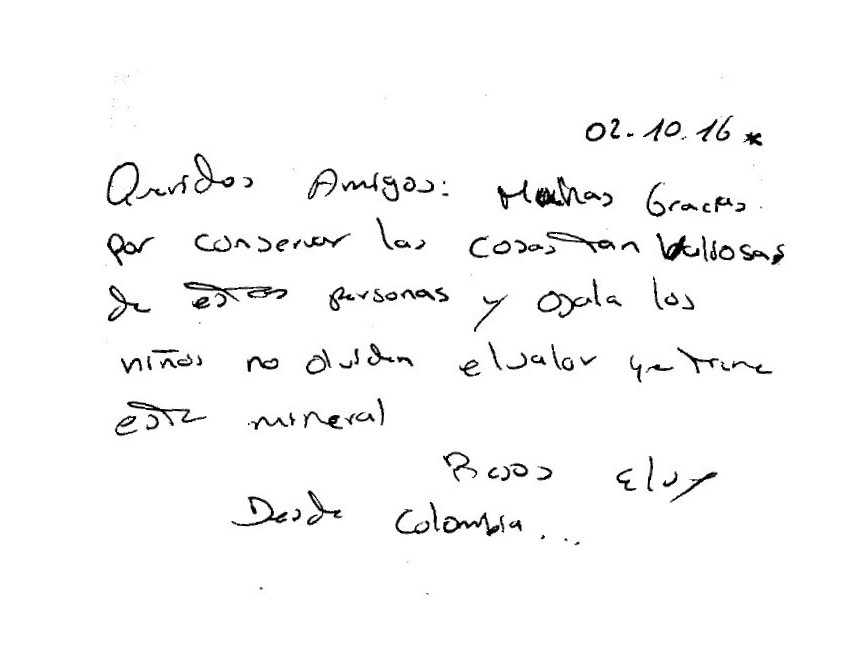 02.10.16 *
Queridos Amigos: Muchas Gracias
por conservar las cosas tan valiosas
de estas personas y ojala los
niños no olviden el valor que tiene
este mineral
Besos
Desde Colombia...